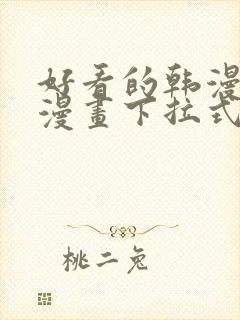 好看的韩漫
漫畫下拉式
桃二兔